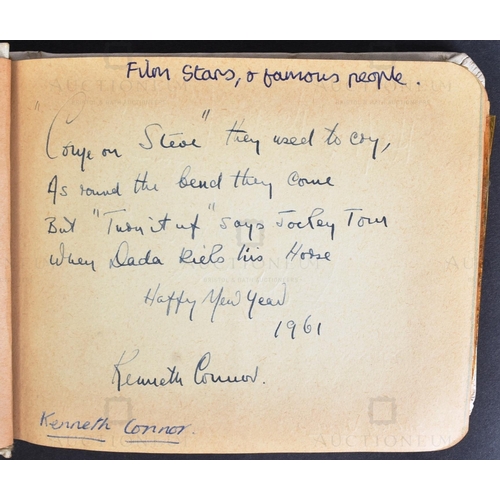 Film Stars, & famous people.
"Come on Steve" they used to cry,
As round the bend they come
But "Turn it up" says Jockey Tom
When Dada his Horse
Happy New Year
1961
Kenneth Connor.
Kenneth Connor.
AUCTIONEUM